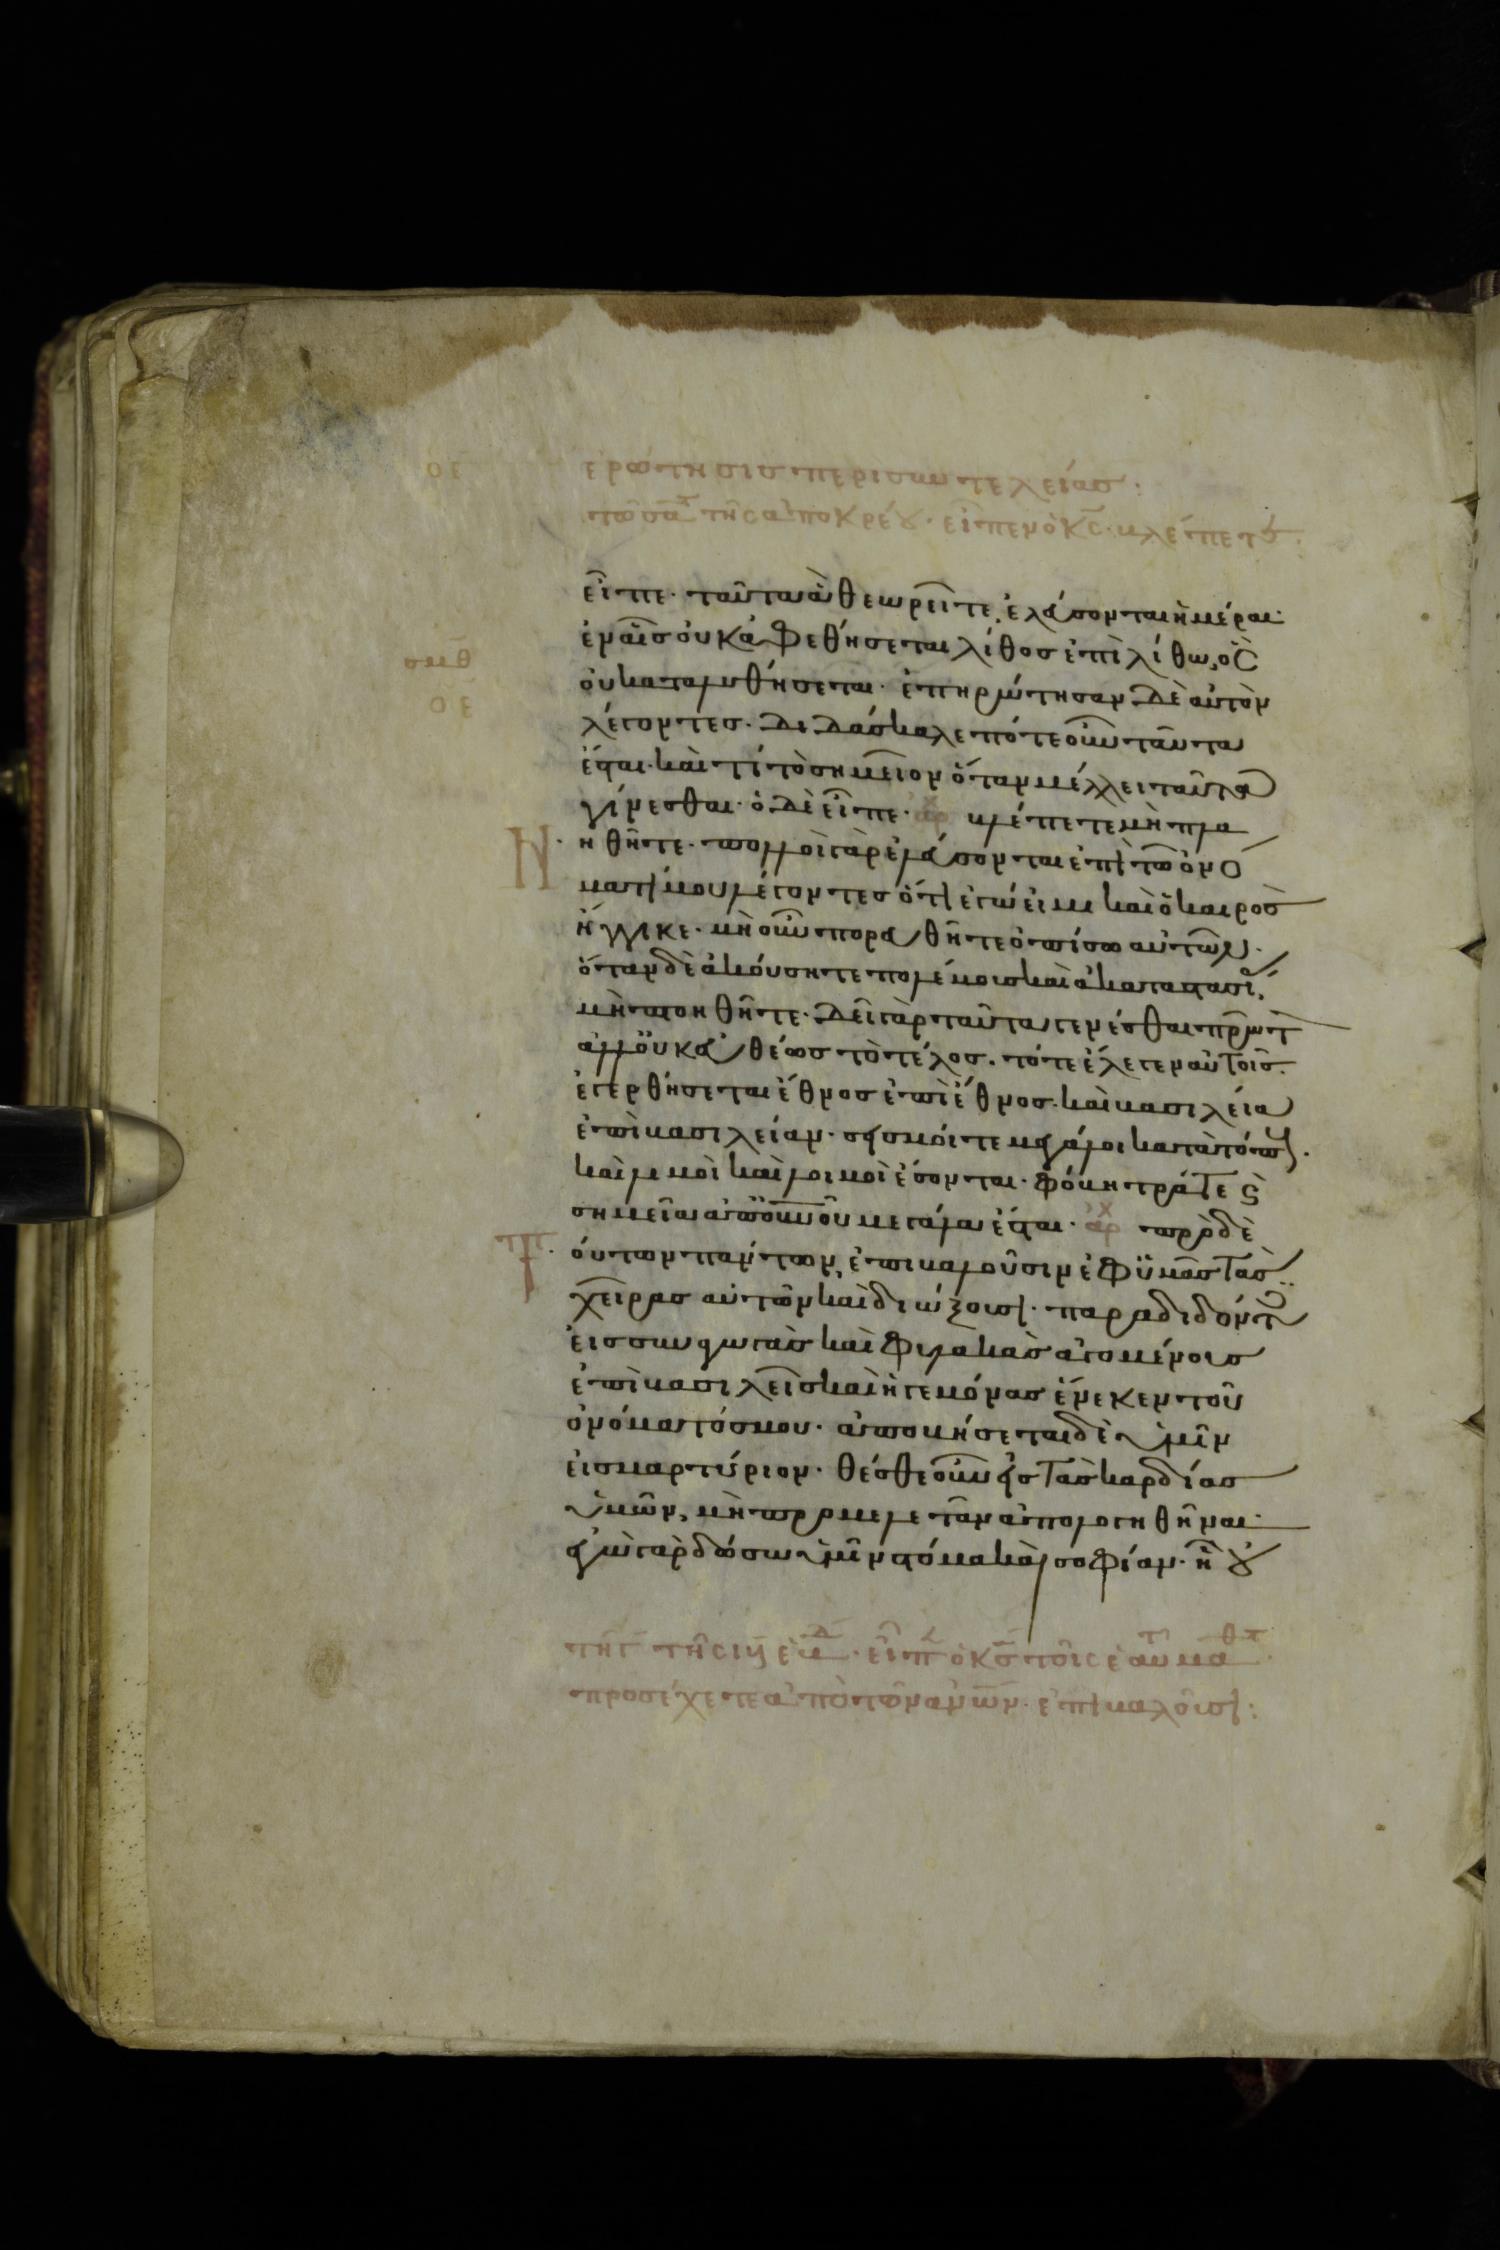 οε ἐρώτησις περι συντελείας:
τῶ σα τῆς ἀποκρέου· εἶπεν ὁ κς· βλέπετε:
εἶπε· ταῦτα ἃ θεωρεῖτε, ἐλεύσονται ἡμέραι·
ἐν αἷς οὐκ ἀφεθήσεται λίθος ἐπὶ λίθω, ὃς
οὐ καταλυθήσεται· ἐπηρώτησαν δὲ αὐτὸν
λέγοντες· διδάσκαλε πότε οὖν ταῦτα
ἔσται· καὶ τί τὸ σημεῖον ὅταν μέλλει ταῦτα
γίνεσθαι· ὁ δὲ εἶπε· αρχ βλέπετε μὴ πλα
νηθῆτε· πολλοὶ γὰρ ἐλεύσονται ἐπὶ τῶ ὀνό
ματί μου λέγοντες ὅτι ἐγώ εἰμι καὶ ὁ καιρὸς
ἤγγικε· μὴ οὖν πορευθῆτε ὀπίσω αὐτῶν·
ὅταν δὲ ἀκούσητε πολέμους καὶ ἀκαταστασί,
μὴ πτοηθῆτε· δεῖ γὰρ ταῦτα γενέσθαι πρῶτ
ἀλλ' οὐκ εὐθέως τὸ τέλος. τότε ἔλεγεν αὐτοῖς·
ἐγερθήσεται ἔθνος ἐπὶ ἔθνος· καὶ βασιλεία
ἐπὶ βασιλείαν· σεισμοί τε μεγάλοι κατὰ τόπους·
καὶ λιμοὶ καὶ λοιμοὶ ἔσονται· φόβητρά τε ϛ
σημεῖα ἀπ' οὐνοῦ μεγάλα ἔσται· αρχ πρὸ δὲ
τούτων πάντων, ἐπιβαλοῦσιν ἐφ' ὑμᾶς τὰς
χεῖρας αὐτῶν καὶ διώξουσι· παραδιδόντες
εἰς συναγωγὰς καὶ φυλακὰς ἀγομένους
ἐπὶ βασιλεῖς καὶ ἡγεμόνας ἕνεκεν τοῦ
ὀνόματός μου· ἀποβήσεται δὲ ὑμῖν
εἰς μαρτύριον· θέσθε οὖν εἰς τὰς καρδίας
ὑμῶν, μὴ προμελετᾶν ἀπολογηθῆναι·
ἐγὼ γὰρ δώσω ὑμῖν στόμα καὶ σοφίαν· ᾗ οὐ
προσέχετε ἀπὸ τῶν ἀνων· ἐπιβαλοῦσι: